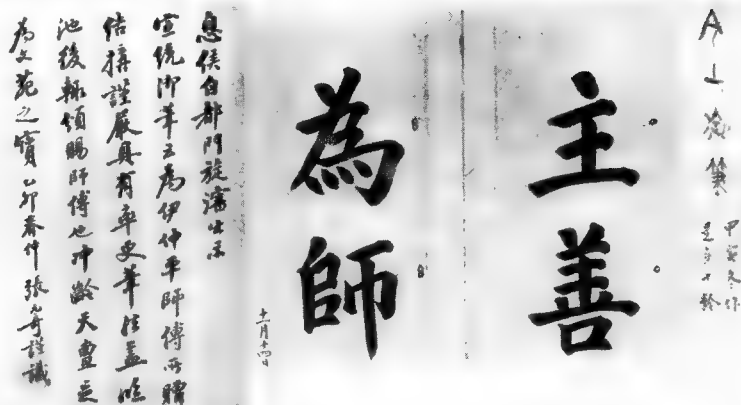 今上御筆
甲寅冬作
主善
為師
十一月十四日
息侯自都門旋瀋出示
宣統御筆云為伊仲平師傅所贈
結構謹嚴具有率更筆法蓋臨
池後輒頒賜師傅也冲齡天亶足
為文苑之寶乙卯春仲張元奇謹識